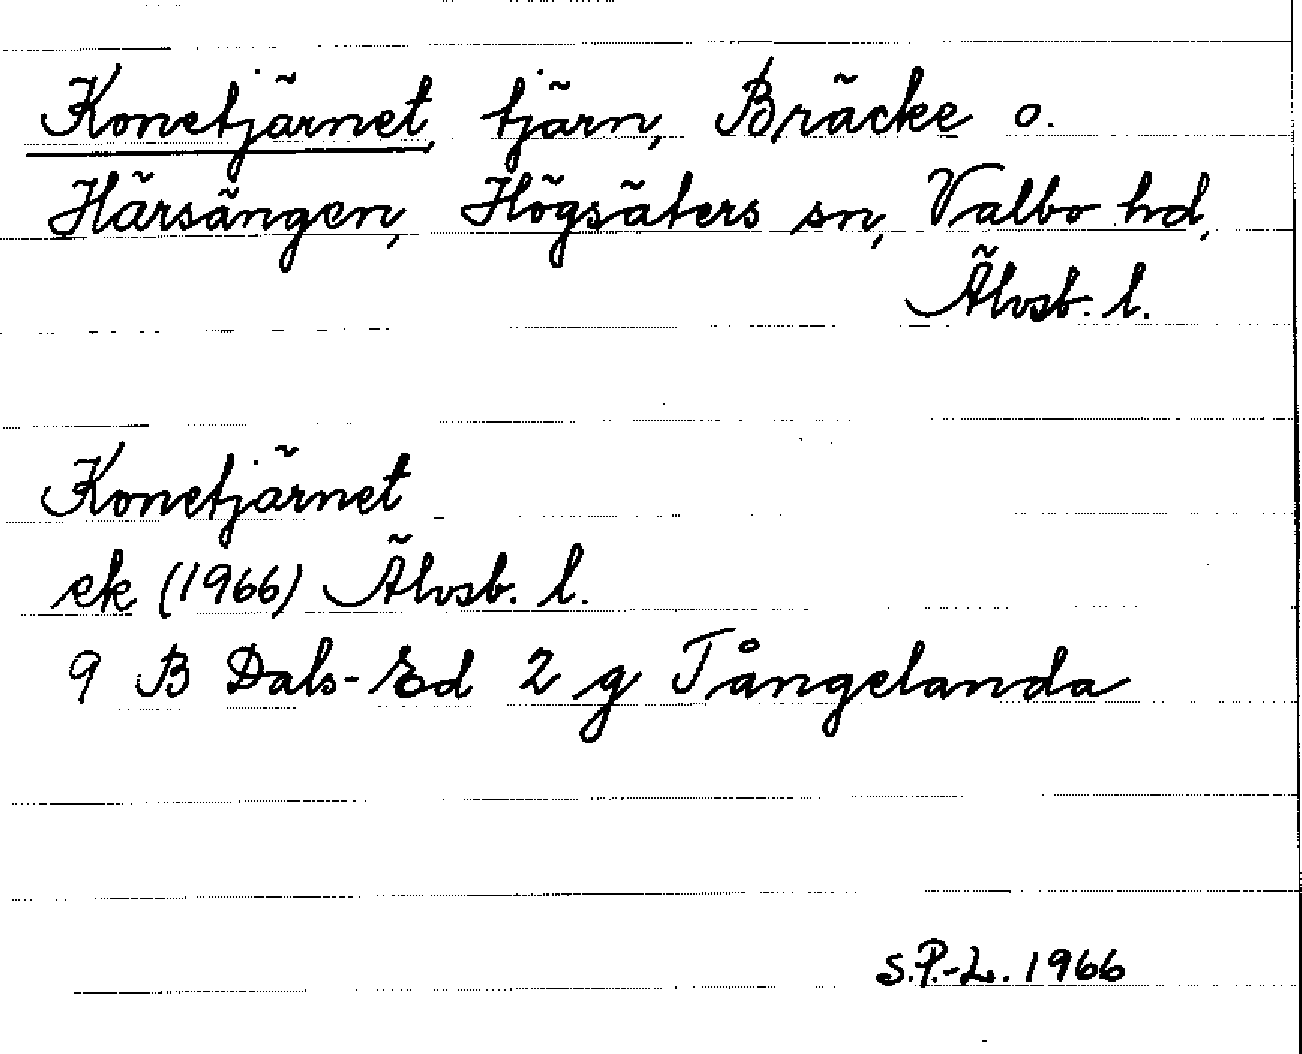 Konetjärnet, tjärn, Bräcke o.
Härsängen, Högsäters sn, Valbo hd,
Älvsb. l.
Konetjärnet
ek (1966) Älvsb. l.
9 B Dals-Ed 2 g Tångelanda
S.P.-L. 1966